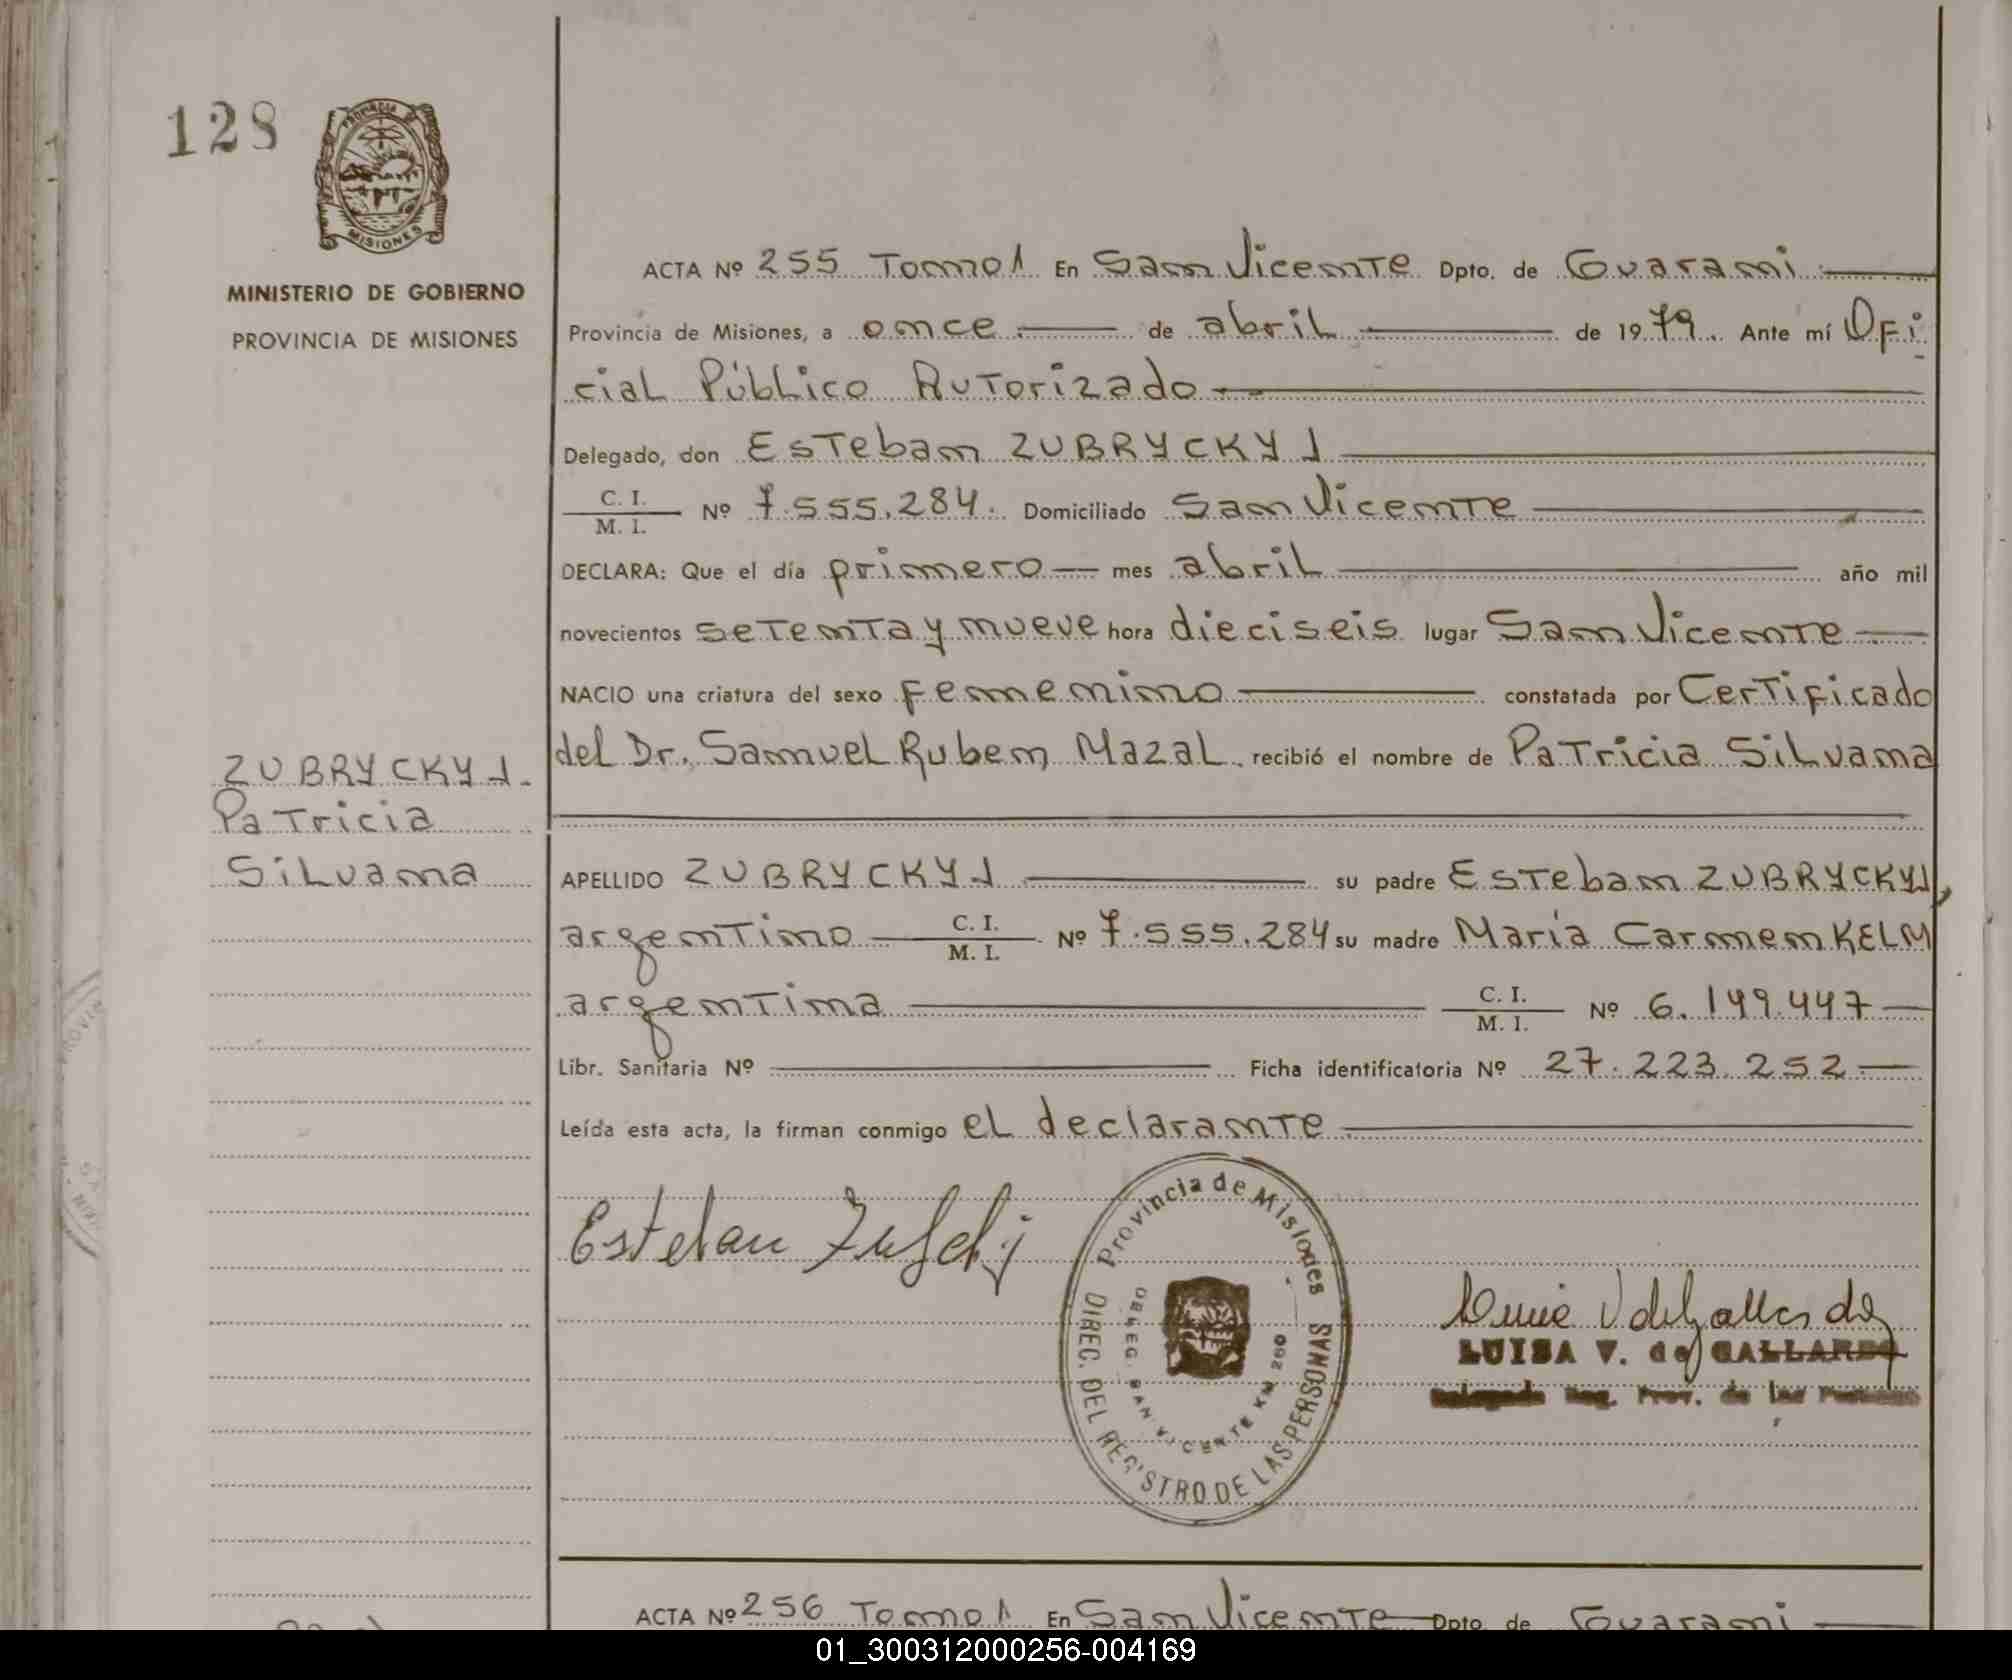 128
PROVINCIA DE
MISIONES
MINISTERIO DE GOBIERNO
PROVINCIA DE MISIONES
ACTA Nº 255 Tomo 1 En San Vicente Dpto. de Guarani
Provincia de Misiones, a once de abril de 1979. Ante mí Ofi
cial Público Autorizado
Delegado, don Esteban ZUBRYCKYJ
C. I.
M. I. Nº 7.555.284. Domiciliado San Vicente
DECLARA: Que el día primero mes abril año mil
novecientos setenta y nueve hora dieciseis lugar San Vicente
NACIO una criatura del sexo femenino constatada por Certificado
del Dr. Samuel Ruben Mazal recibió el nombre de Patricia Silvana
ZUBRYCKYJ.
Patricia
Silvana
APELLIDO ZUBRYCKYJ su padre Esteban ZUBRYCKYJ,
argentino C. I.
M. I. Nº 7.555.284 su madre María Carmen KELM
argentina C. I.
M. I. Nº 6.149.447
Libr. Sanitaria Nº Ficha identificatoria Nº 27.223.252
Leída esta acta, la firman conmigo el declarante
Esteban
Provincia de Misiones
DIREC. DEL REGISTRO DE LAS PERSONAS
DELEG. SAN VICENTE KM 260
LUISA V. de GALLARDO
Delegada Reg. Prov. de las Personas
ACTA Nº 256 Tomo 1 En San Vicente Dpto. de Guarani
01_300312000256-004169